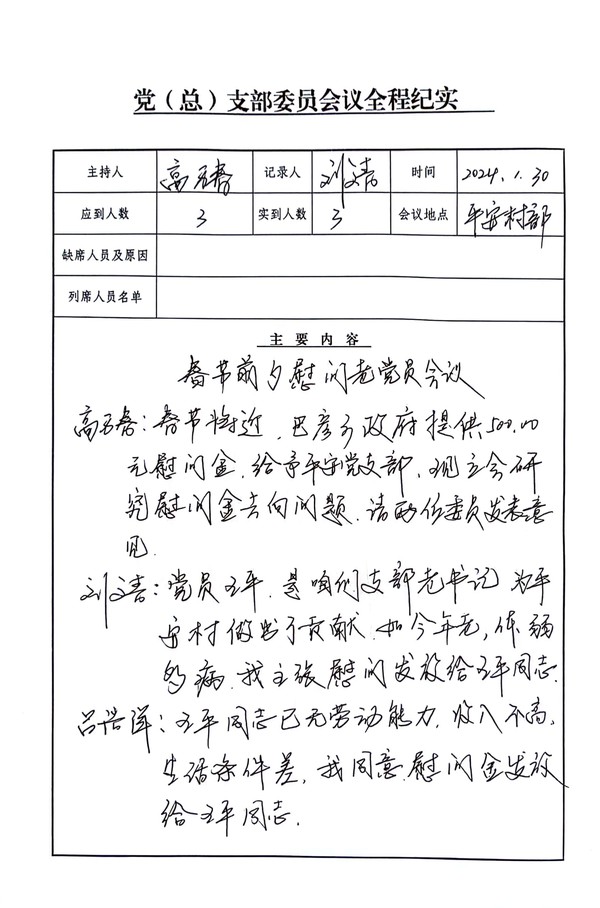 党（总）支部委员会议全程纪实
主持人 高万春 记录人 刘文吉 时间 2024.1.30
应到人数 3 实到人数 3 会议地点 平安村部
缺席人员及原因
列席人员名单
主要内容
春节前夕慰问老党员会议
高万春：春节将近，巴彦乡政府提供500.00
元慰问金，给予平安党支部，现立会研
究慰问金去向问题，请两位委员发表意
见.
刘文吉：党员王平，是咱们支部老书记 为平
安村做出了贡献.如今年老，体弱
多病.我主张慰问发放给王平同志.
吕洪洋：王平同志已无劳动能力，收入不高.
生活条件差，我同意慰问金发放
给王平同志.